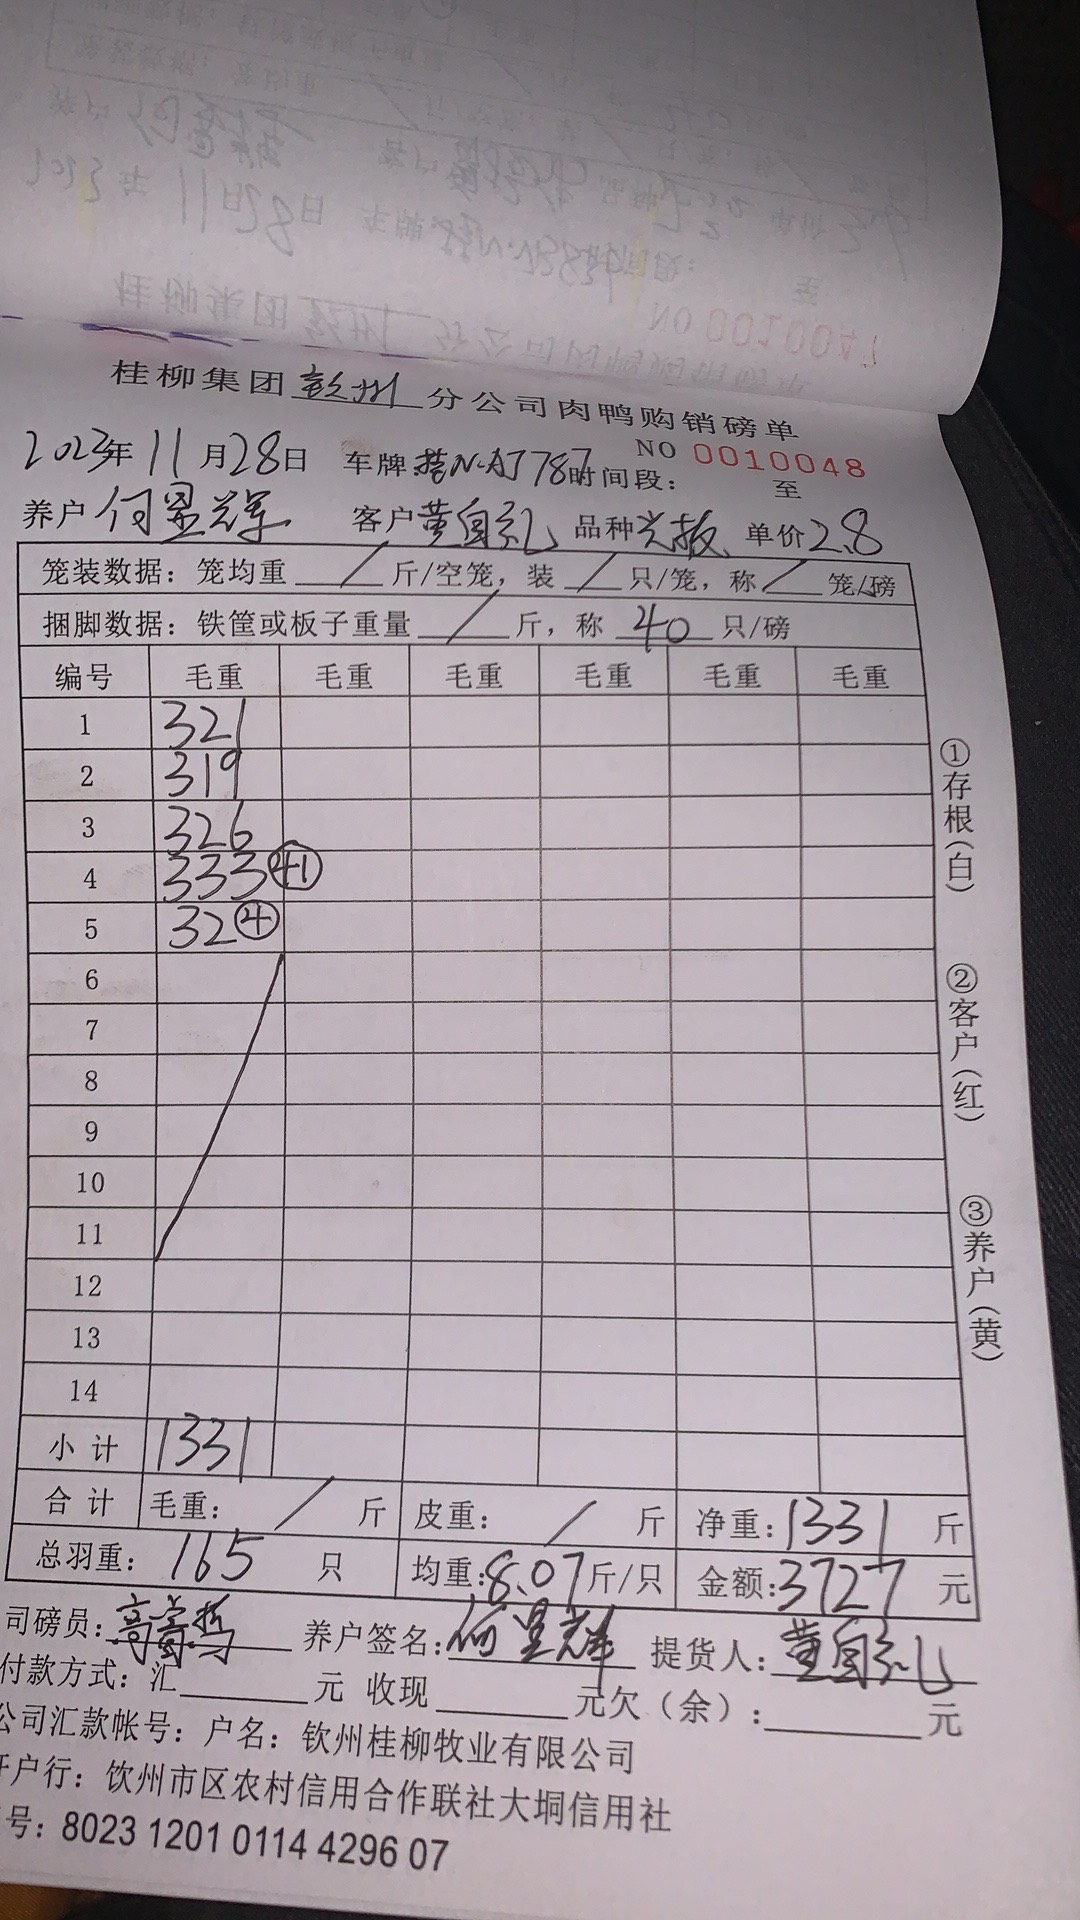 桂柳集团钦州分公司肉鸭购销磅单
NO 0010048
2023年11月28日 车牌:桂N·AJ787 时间段: 至
养户何显辉 客户黄自礼 品种 单价2.8
笼装数据:笼均重 / 斤/空笼,装 / 只/笼,称 / 笼/磅
捆脚数据:铁筐或板子重量 / 斤,称 40 只/磅
编号 毛重 毛重 毛重 毛重 毛重 毛重
1 321
2 319
3 326
4 333 ㊶
5 32 ④
6
7
8
9
10
11
12
13
14
小计 1331
合计 毛重: / 斤 皮重: / 斤 净重:1331 斤
总羽重: 165 只 均重:8.07斤/只 金额:3727元
司磅员: 养户签名:何显辉 提货人:黄自礼
付款方式:汇 元 收现 元欠(余): 元
公司汇款帐号:户名:钦州桂柳牧业有限公司
开户行:钦州市区农村信用合作联社大垌信用社
号:8023 1201 0114 4296 07
①存根(白)
②客户(红)
③养户(黄)